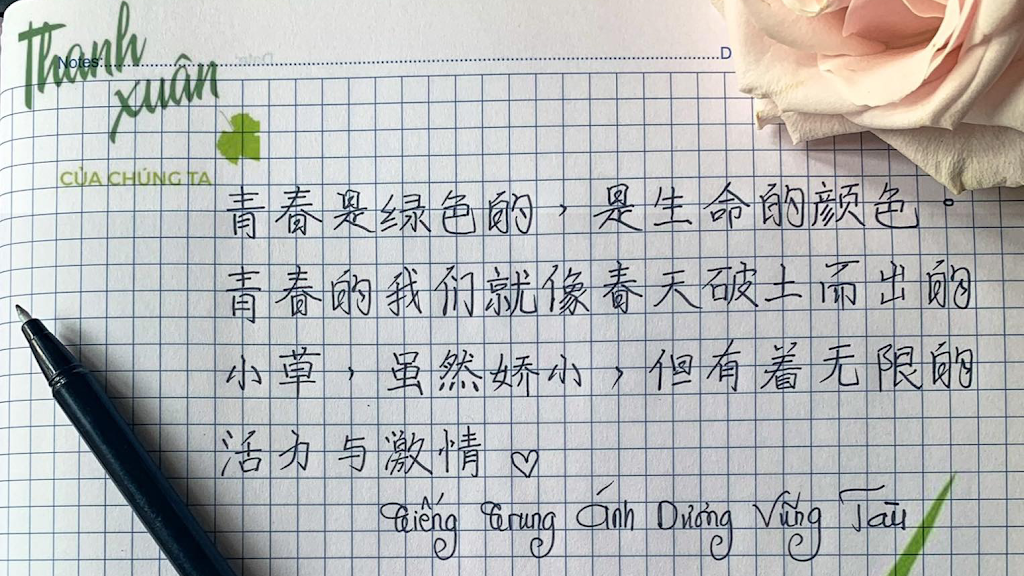 Thanh
xuân
Notes:
D
CỦA CHÚNG TA
青春是绿色的，是生命的颜色。
青春的我们就像春天破土而出的
小草，虽然娇小，但有着无限的
活力与激情♡
Tiếng Trung Ánh Dương Vũng Tàu